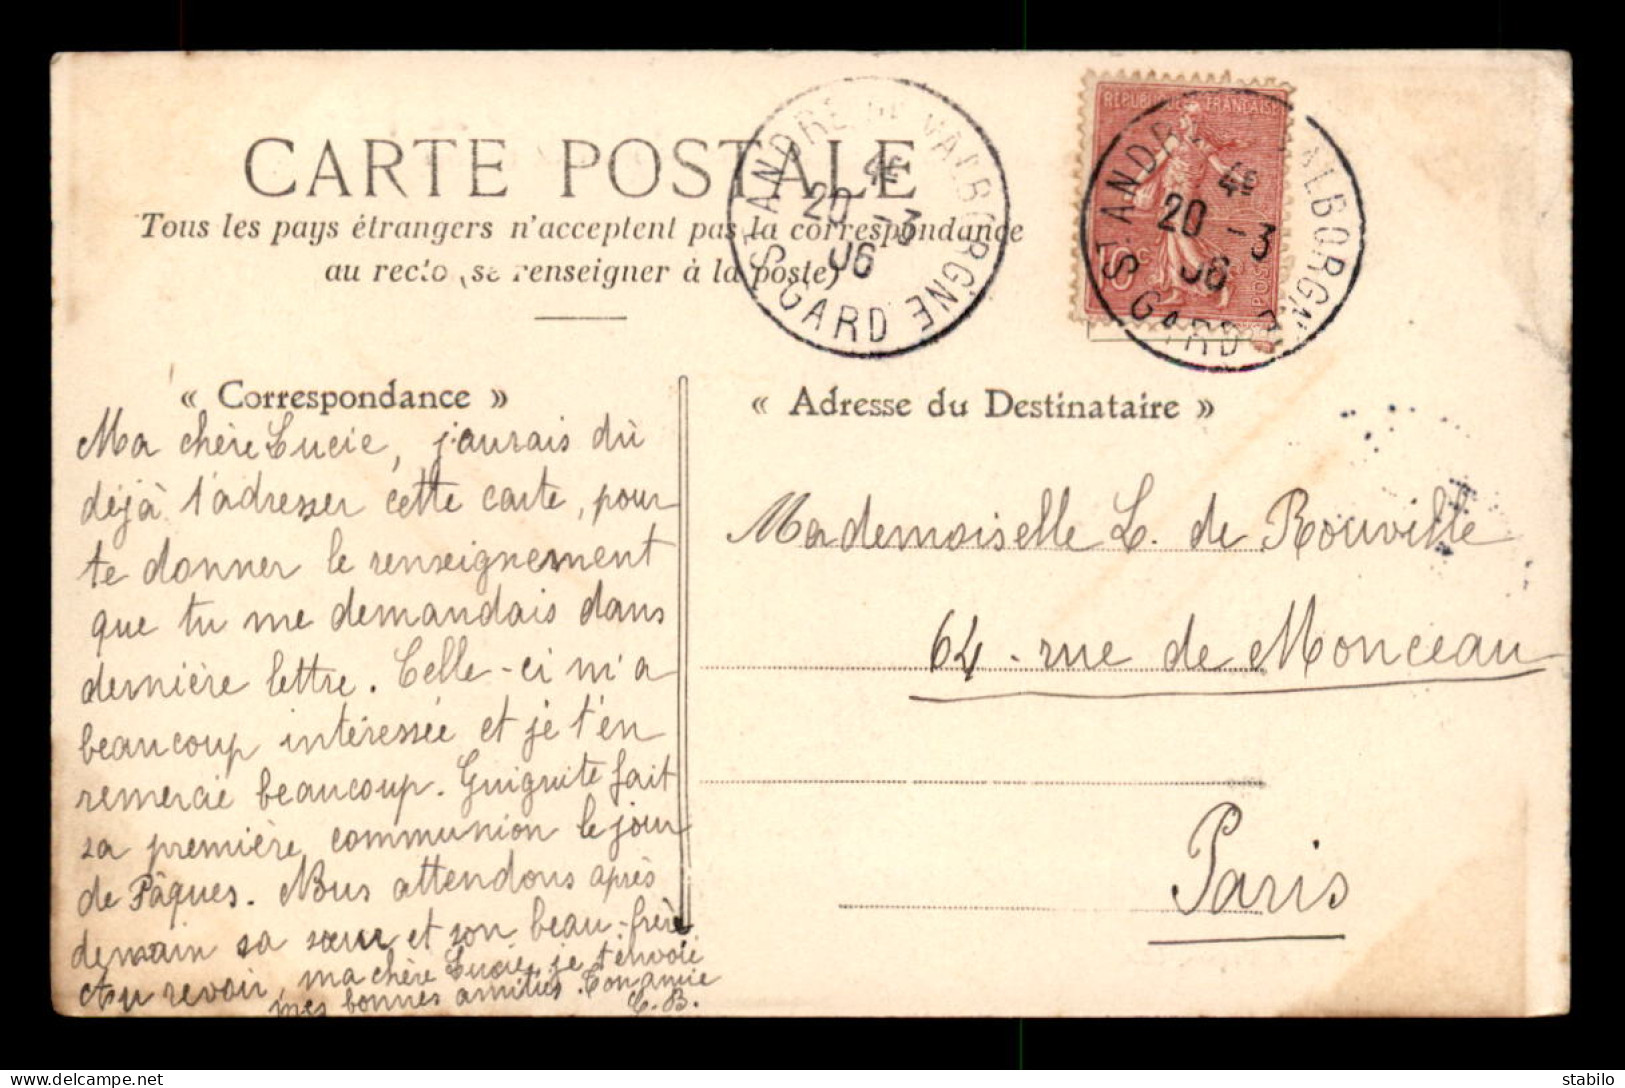 CARTE POSTALE
Tous les pays étrangers n'acceptent pas la correspondance
au recto (se renseigner à la poste)
ST ANDRÉ DE VALBORGNE
4E
20 -3
06
GARD
RÉPUBLIQUE FRANÇAISE
10 c.
POSTES
ST ANDRÉ VALBORGNE
4E
20 -3
06
GARD
« Correspondance »
Ma chère Lucie, j'aurais dû
déjà t'adresser cette carte, pour
te donner le renseignement
que tu me demandais dans
dernière lettre. Celle-ci m'a
beaucoup intéressée et je t'en
remercie beaucoup. Guiguite fait
sa première communion le jour
de Pâques. Nous attendons après
demain sa sœur et son beau-frère
Au revoir, ma chère Lucie, je t'envoie
mes bonnes amitiés. Ton amie
C. B.
« Adresse du Destinataire »
Mademoiselle L. de Rouville
64 - rue de Monceau
Paris
delcampe.net
stabilo